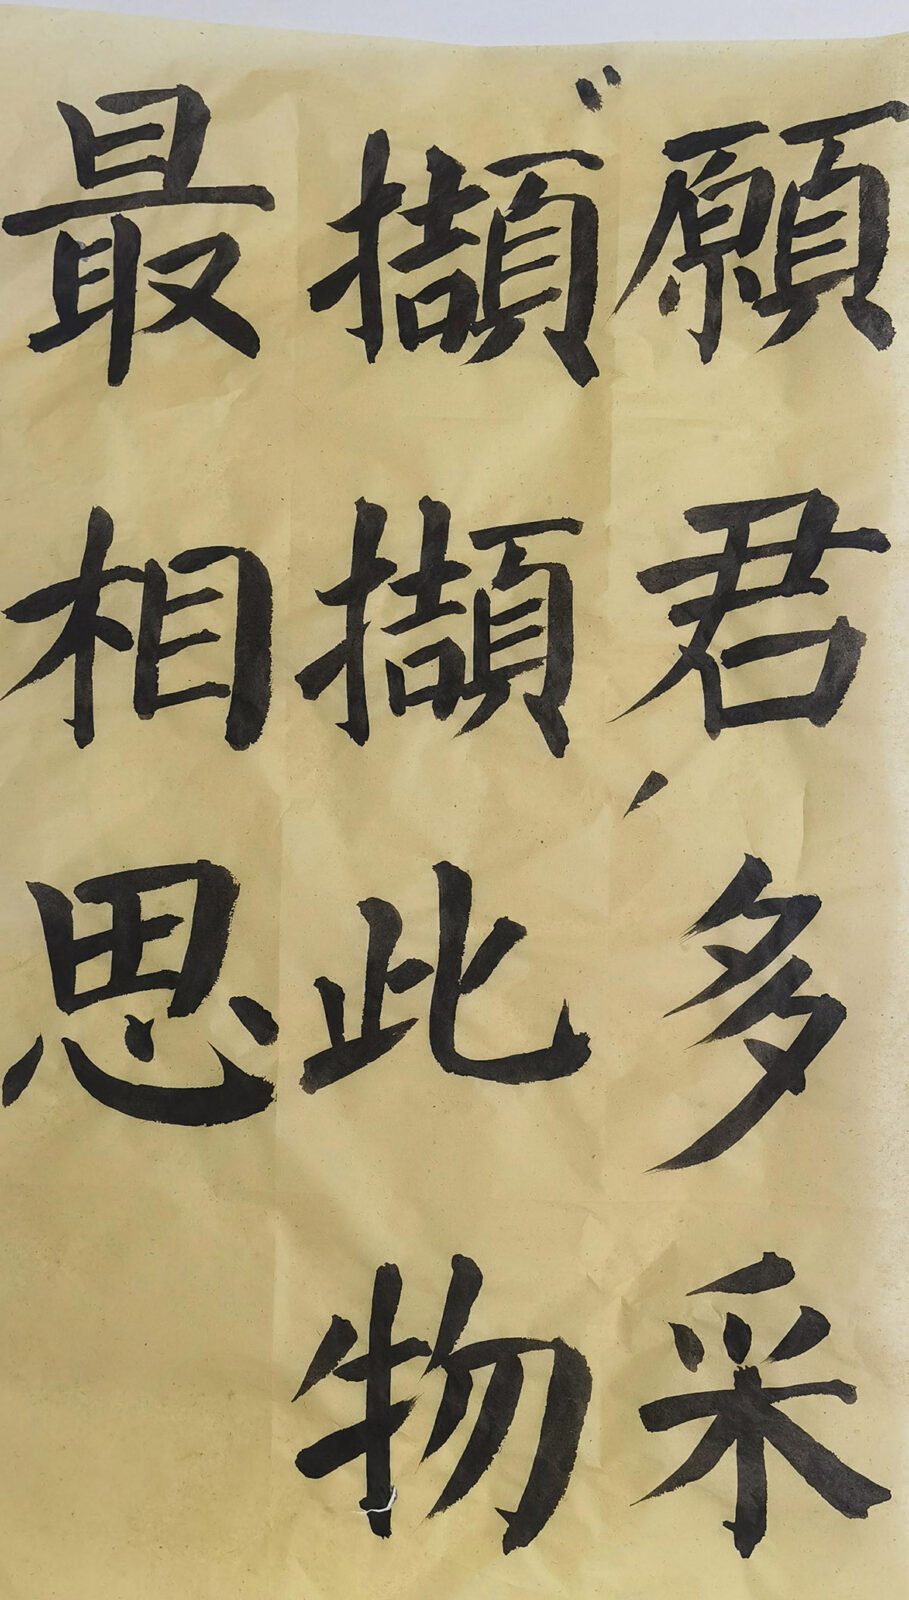 願君多采
擷擷此物
最相思